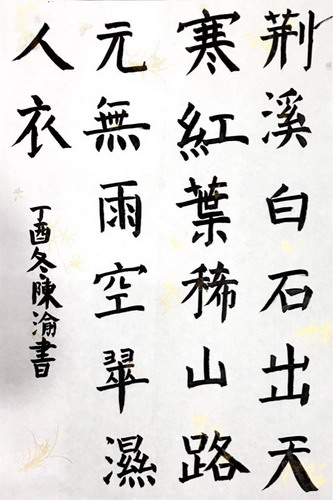 荆溪白石出天
寒紅葉稀山路
元無雨空翠濕
人衣
丁酉冬陳渝書